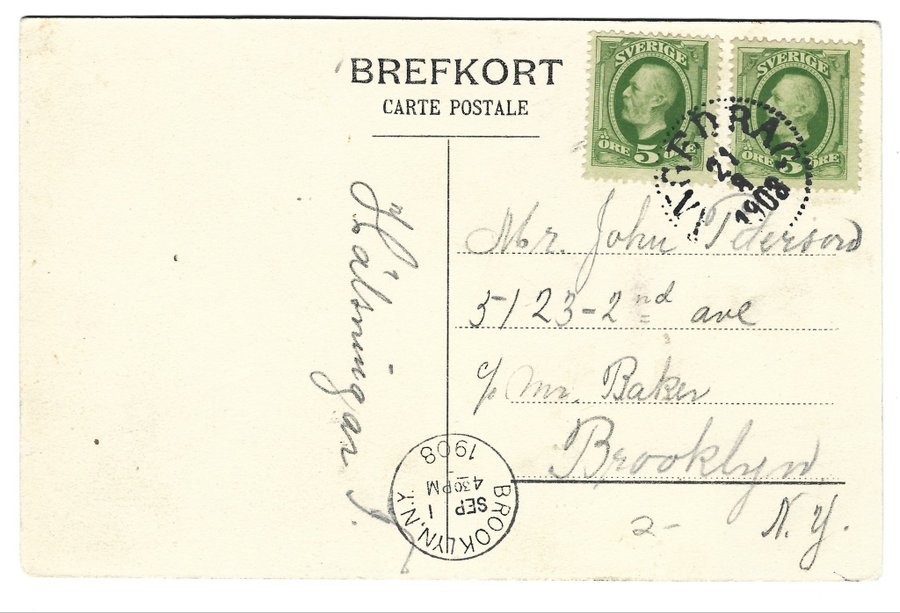 BREFKORT
CARTE POSTALE
SVERIGE
ÖRE 5 ÖRE
SVERIGE
ÖRE 5 ÖRE
21
8
1908
Mr. John Peterson
5123-2nd ave
c/o Mr. Baker
Brooklyn
N.Y.
2-
Hälsningar
BROOKLYN, N.Y.
SEP
1
430 PM
1908